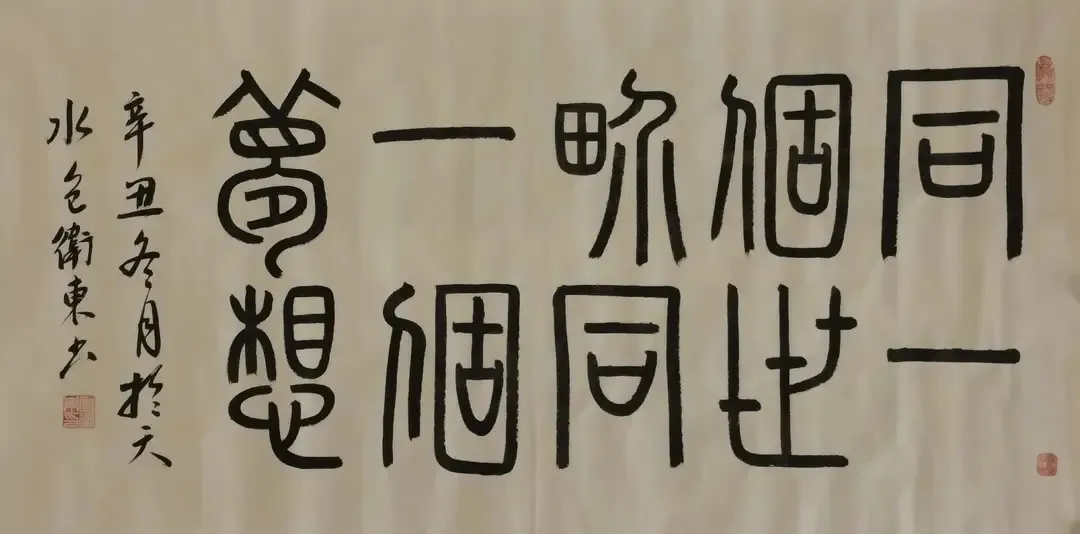 同一
個世
畍同
一個
夢想
辛丑冬月於天
水包衛東书